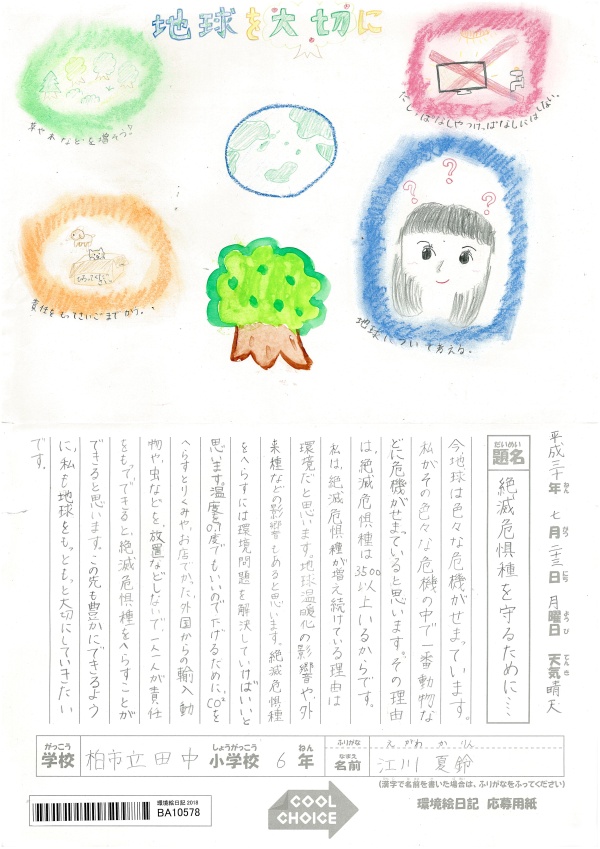 地球を大切に
草や木などを増そう！
だしっぱなしやつけっぱなしにはしない。
ひろってくださ
責任をもってさいごまでかう。
？
？
？
地球について考える。
平成三十年 七月二十三日 月曜日 天気 晴天
ねん がつ にち ようび てんき
だいめい
題名
絶滅危惧種を守るために…
今地球は色々な危機がせまっています。
私がその色々な危機の中で一番動物な
どに危機がせまていると思います。その理由
は、絶滅危惧種は3500以上いるからです。
私は、絶滅危惧種が増え続けている理由は
環境だと思います。地球温暖化の影響や、外
来種などの影響もあると思います。絶滅危惧種
をへらすには環境問題を解決していけばいいと
思います。温度を0.1度でもいいので下げるために、CO²を
へらすとりくみや、お店でかった外国からの輸入動
物や虫などを、放置などしないで、一人一人が責任
をもってできると、絶滅危惧種をへらすことが
できると思います。この先も豊かにできるよう
に、私も地球をもっともっと大切にしていきたい
です。
がっこう しょうがっこう ねん
学校 柏市立田中 小学校 6年
ふりがな えがわ かりん
なまえ
名前 江川 夏鈴
(漢字で名前を書いた場合は、ふりがなをふってください)
環境絵日記 2018
BA10578
COOL
CHOICE
環境絵日記 応募用紙